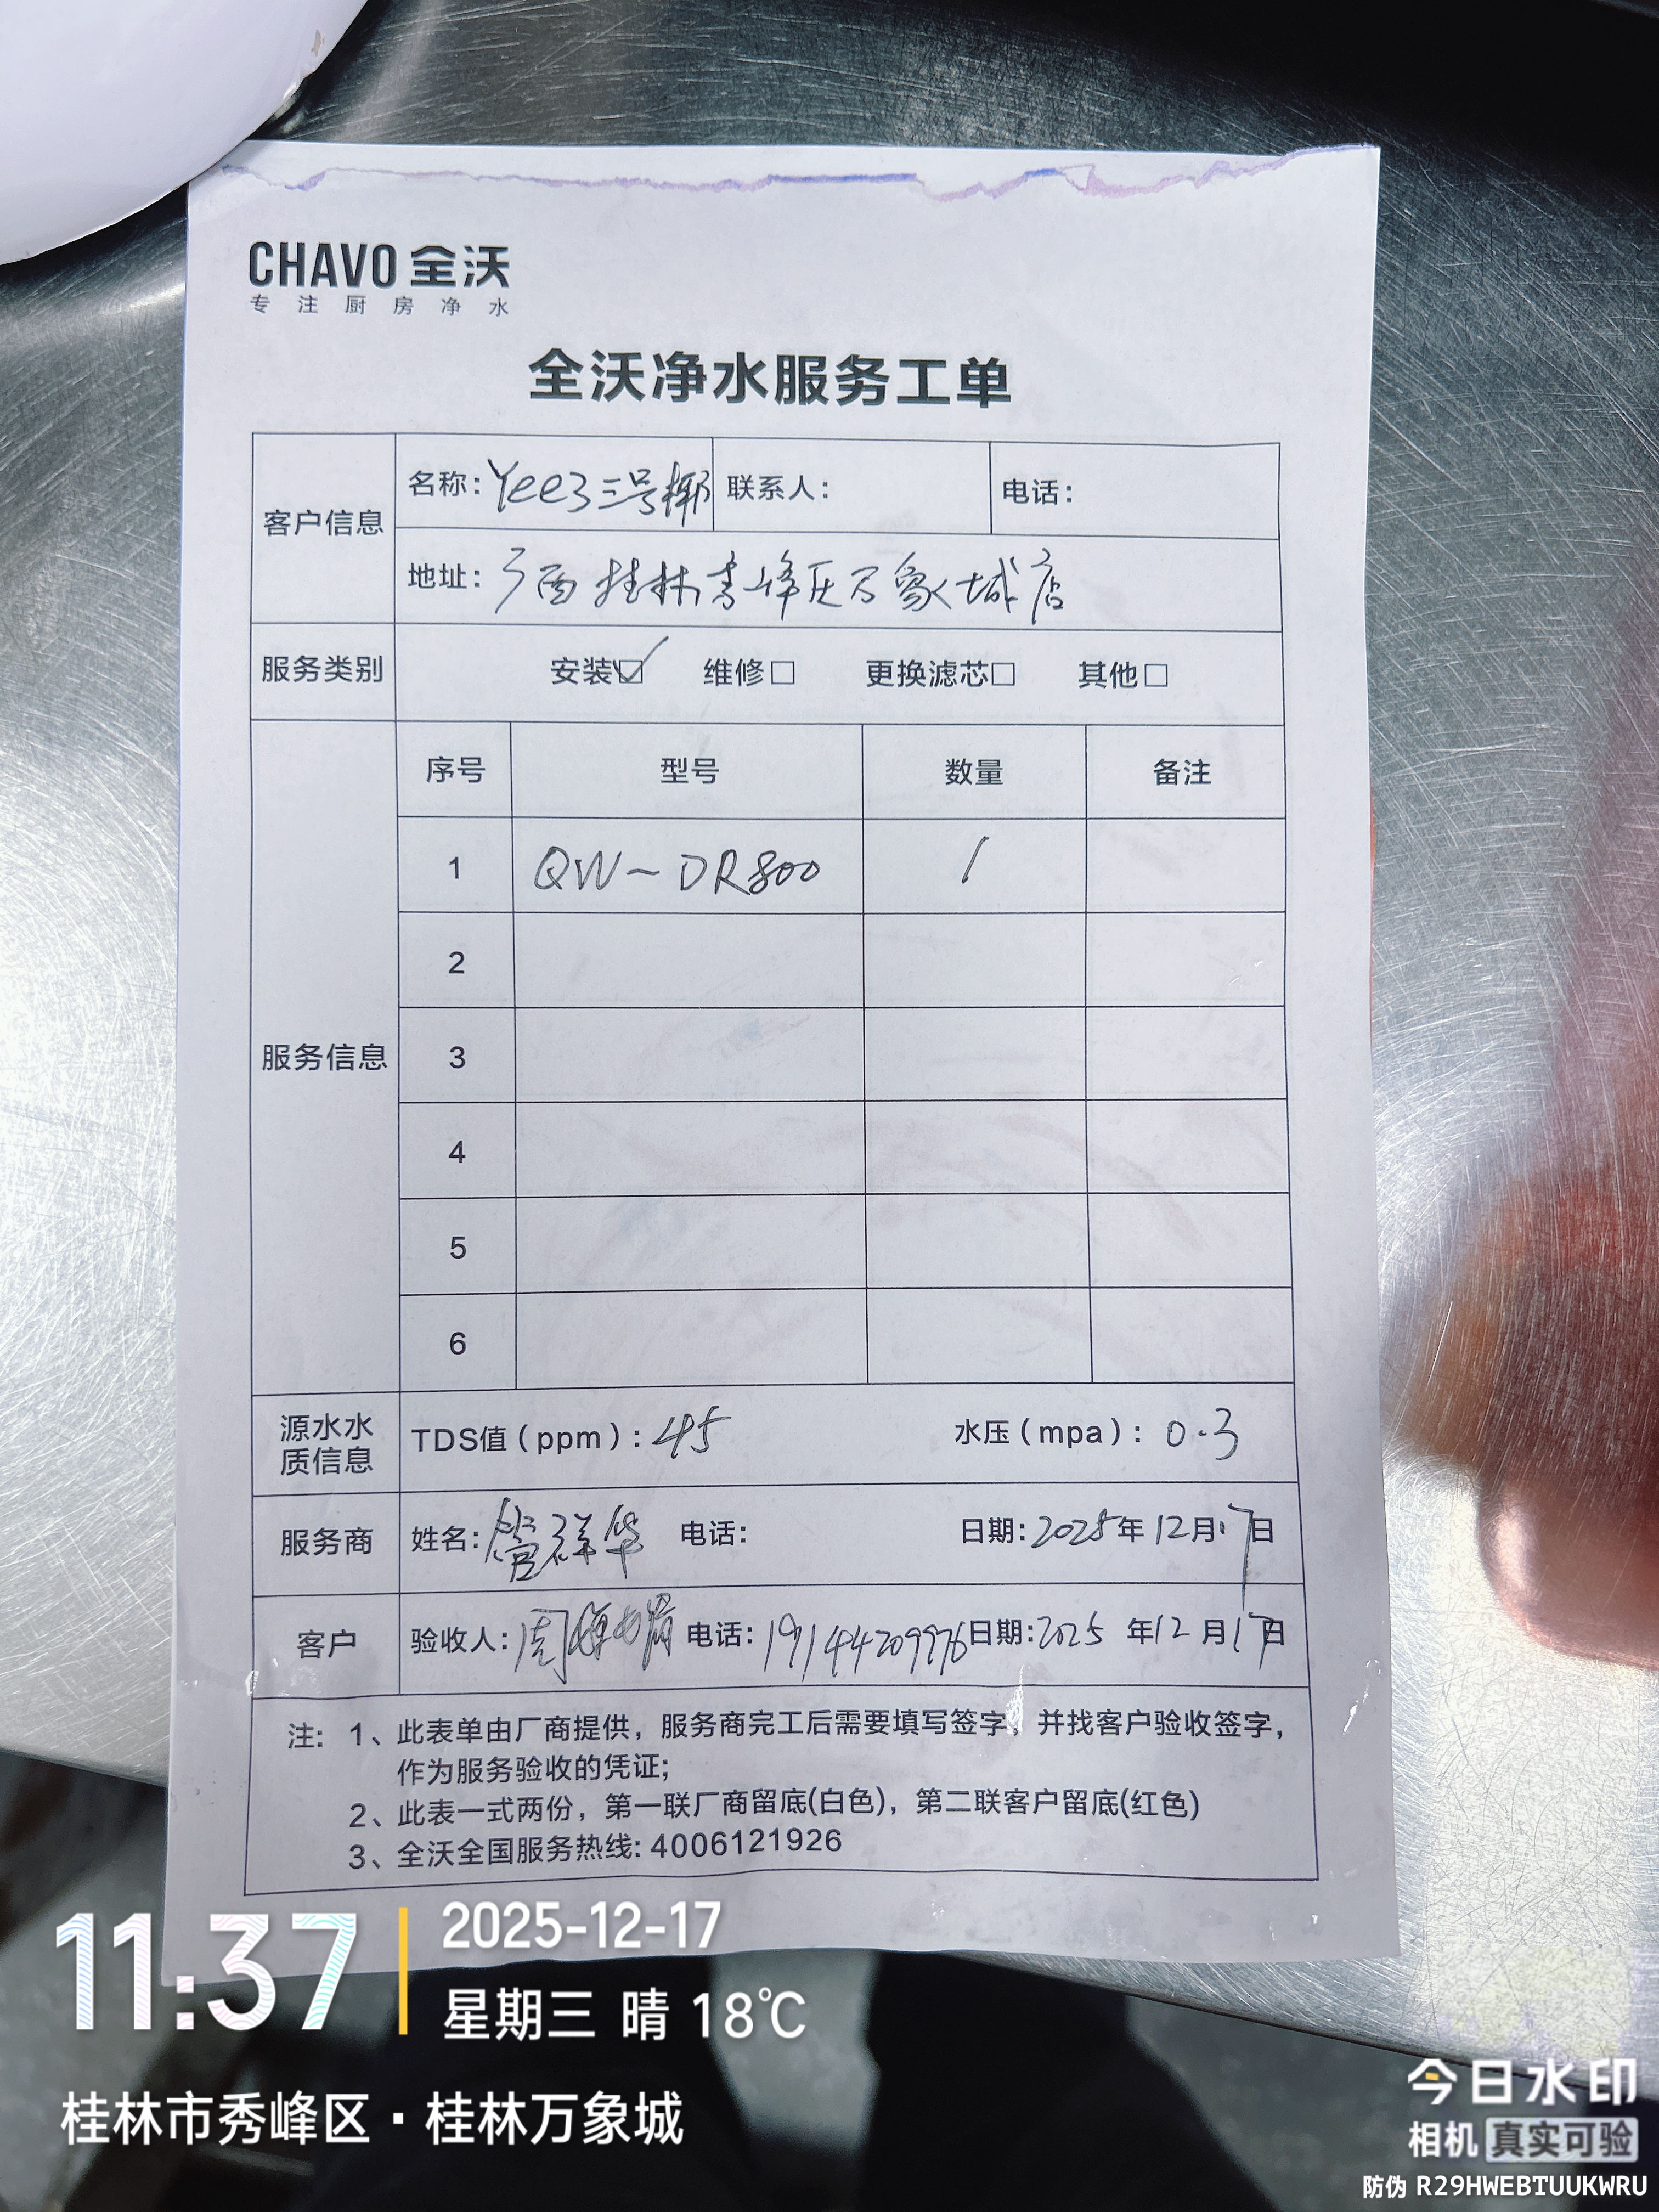 CHAVO 全沃
专注厨房净水
全沃净水服务工单
客户信息
名称: Yee3三号椰 联系人: 电话:
地址: 广西桂林秀峰区万象城店
服务类别 安装☑ 维修□ 更换滤芯□ 其他□
服务信息
序号 型号 数量 备注
1 QW-DR800 1
2
3
4
5
6
源水水质信息
TDS值(ppm): 45 水压(mpa): 0.3
服务商 姓名: 管群华 电话: 日期: 2025年12月17日
客户 验收人: 周 电话: 19144209976 日期: 2025年12月17日
注: 1、此表单由厂商提供, 服务商完工后需要填写签字, 并找客户验收签字,
作为服务验收的凭证;
2、此表一式两份, 第一联厂商留底(白色), 第二联客户留底(红色)
3、全沃全国服务热线: 4006121926
11:37
2025-12-17
星期三 晴 18℃
桂林市秀峰区·桂林万象城
今日水印
相机 真实可验
防伪 R29HWEBTUUKWRU